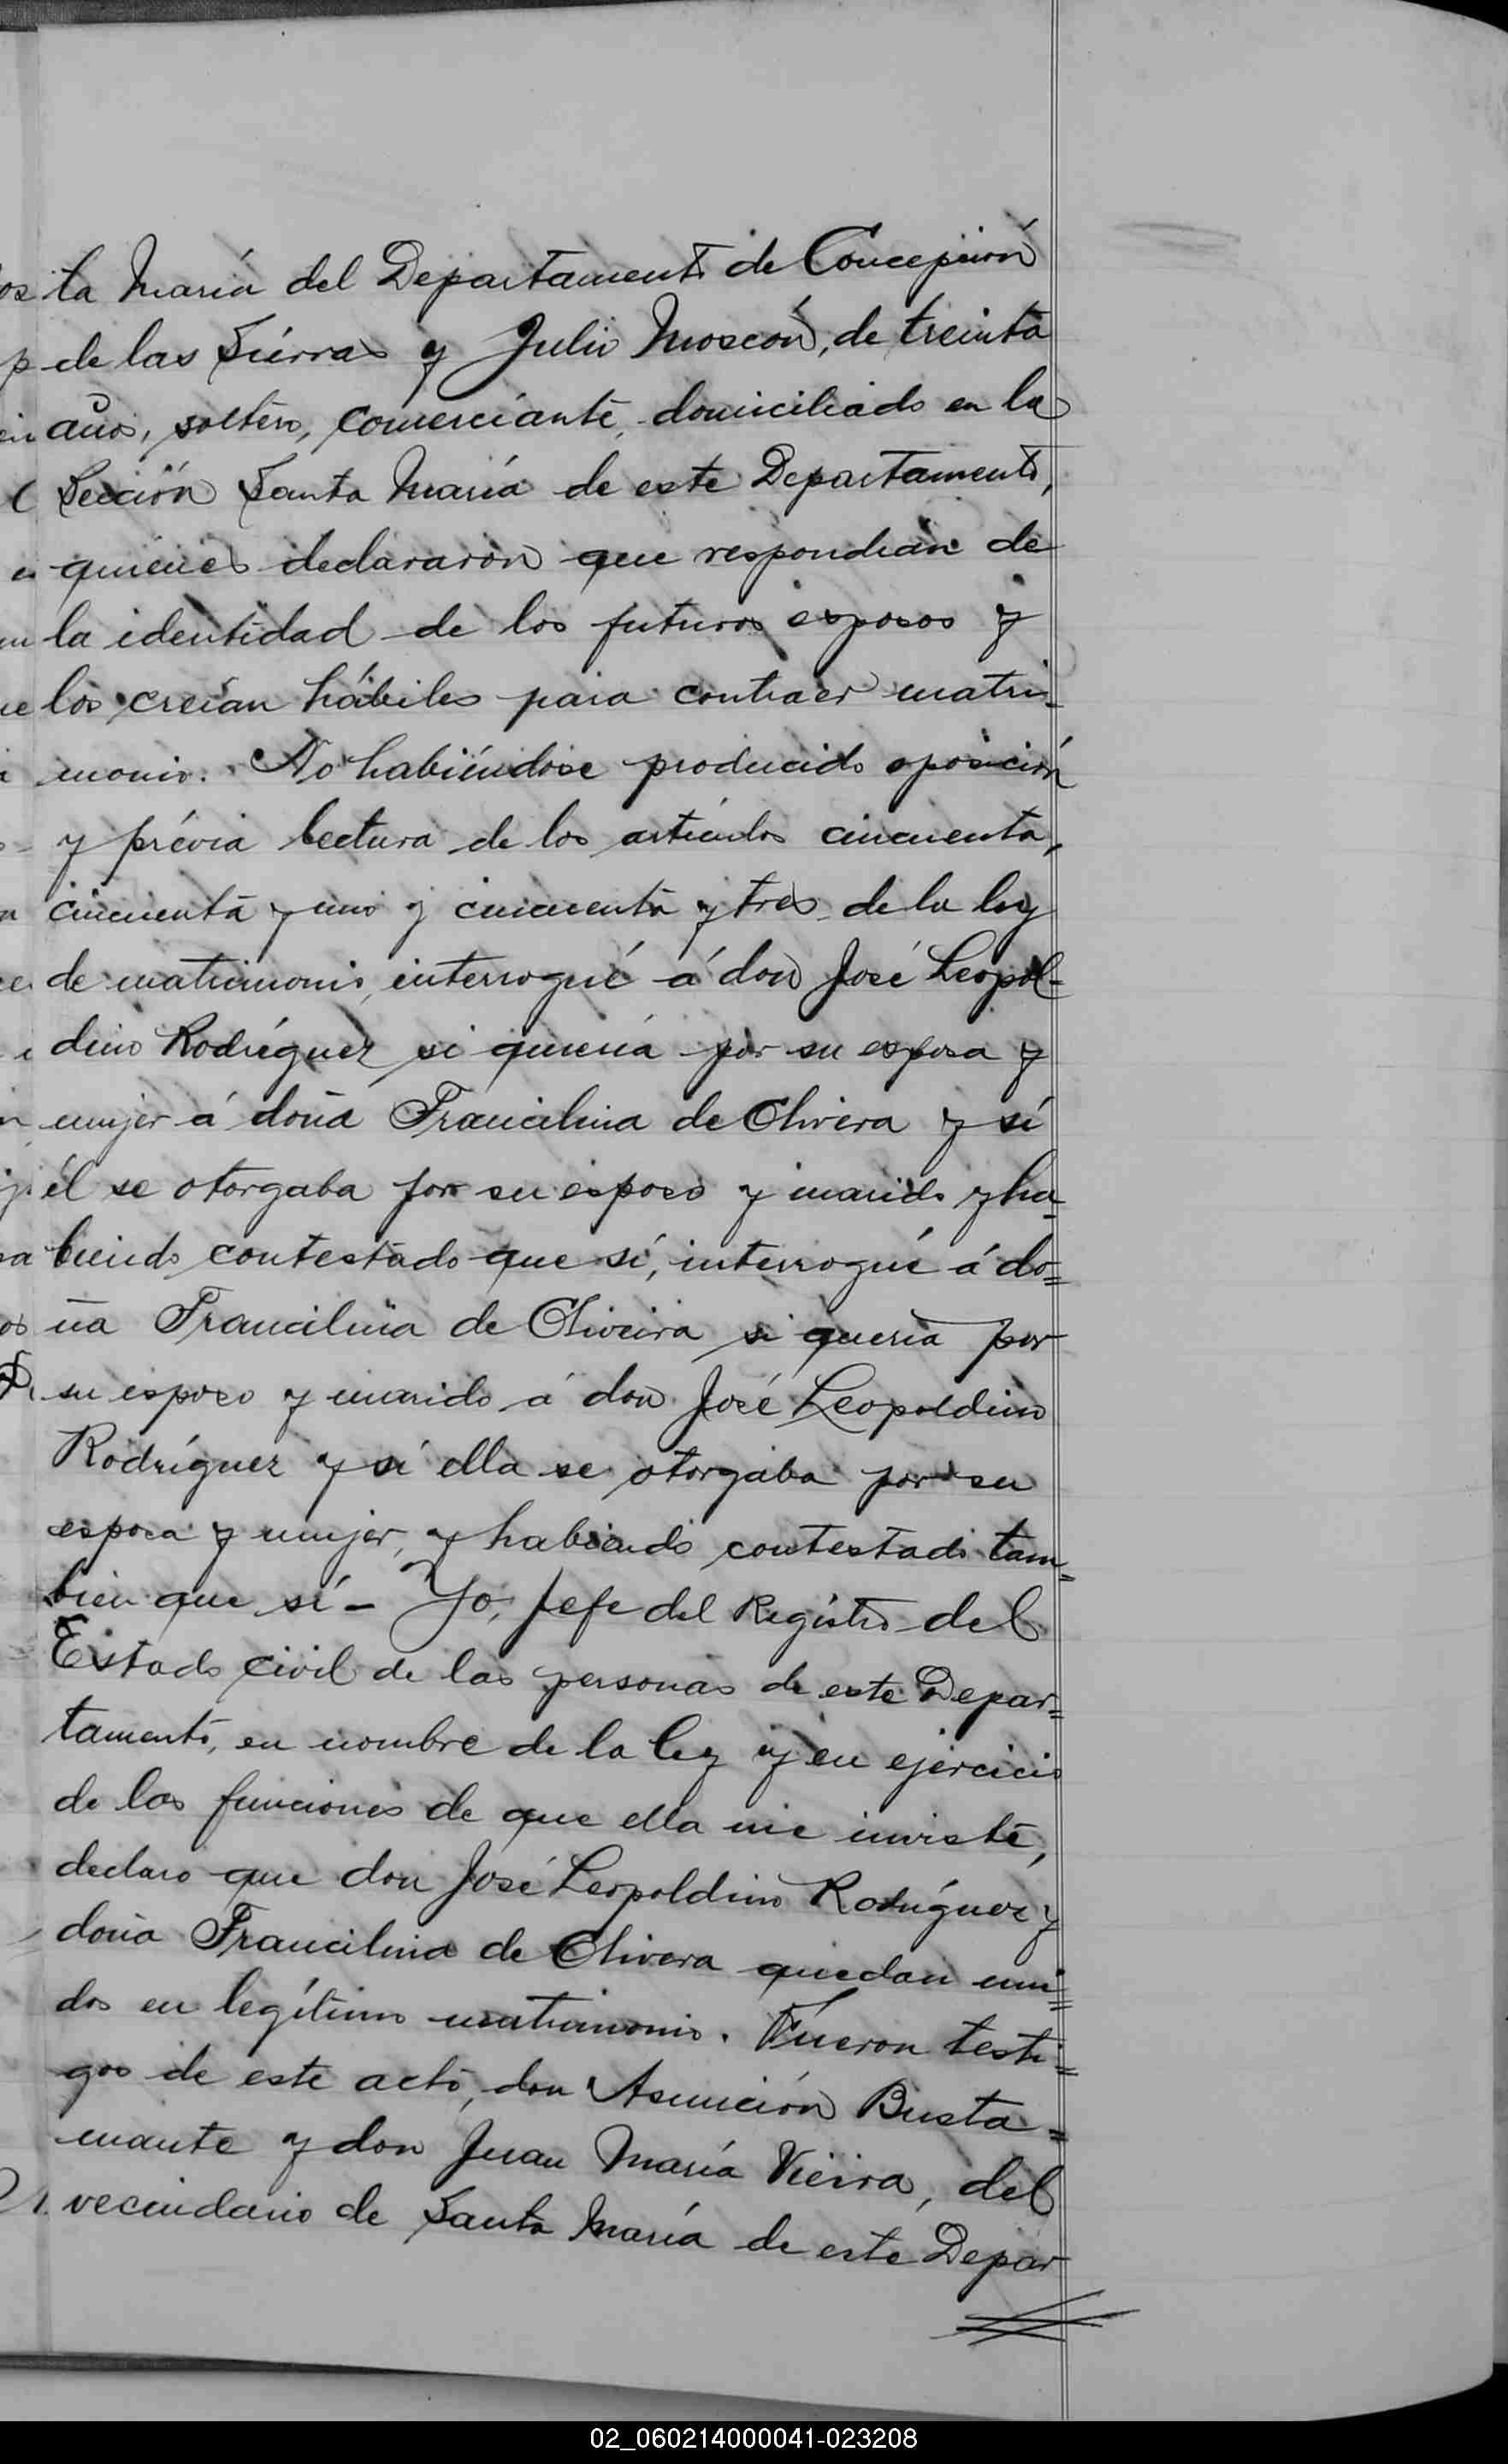 ta María del Departamento de Concepción
de las Sierras y Julio Moscon, de treinta
años, soltero, comerciante, domiciliado en la
Sección Santa María de este Departamento,
quienes declararon que respondian de
la identidad de los futuros esposos y
los creían hábiles para contraer matri-
monio. No habiéndose producido oposición
y prévia lectura de los artículos cincuenta,
cincuenta y uno y cincuenta y tres de la ley
de matrimonio, interrogué á don José Leopol-
dino Rodríguez si quería por su esposa y
mujer á doña Francilina de Olivera y si
él se otorgaba por su esposo y marido y ha-
biendo contestado que sí, interrogué á do=
ña Francilina de Oliveira si quería por
su esposo y marido á don José Leopoldino
Rodríguez y si ella se otorgaba por su
esposa y mujer, y habiendo contestado tam=
bien que sí - Yo, Jefe del Registro del
Estado civil de las personas de este Depar=
tamento, en nombre de la ley y en ejercicio
de las funciones de que ella me inviste,
declaro que don José Leopoldino Rodríguez y
doña Francilina de Olivera quedan uni=
dos en legítimo matrimonio. Fueron testi=
gos de este acto, don Asunción Busta=
mante y don Juan María Vieira, del
vecindario de Santa María de este Depar
02_060214000041-023208